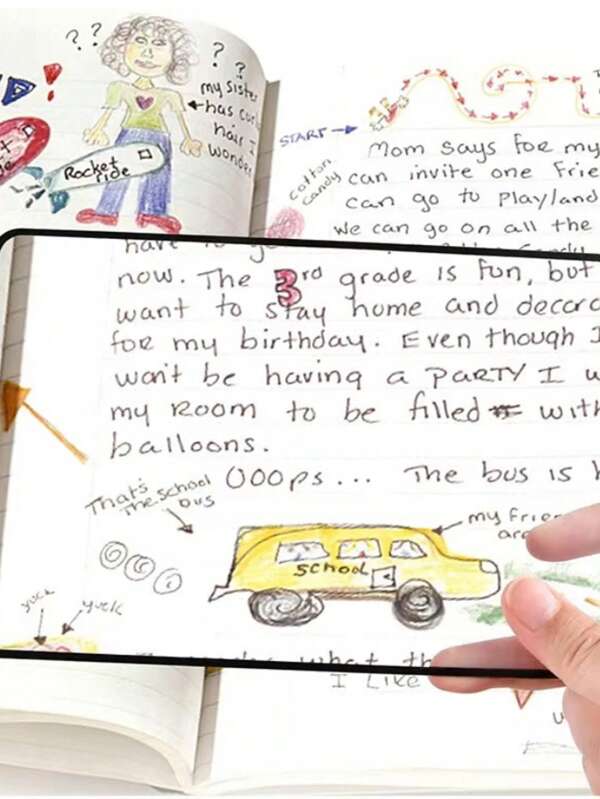 ? ?
? ?
my sister
has
hair I
wonder
Rocket
ride
START
Cotton
Candy
Mom says for my
can invite one
can go to Playland
We can go on all the
have
now. The 3rd grade is fun, but
want to stay home and
for my birthday. Even though I
won't be having a PARTY I
my room to be filled with
balloons.
OOOps... The bus is
That's
the school
bus
my
SCHOOL
yuck
yuck
what th
I Like